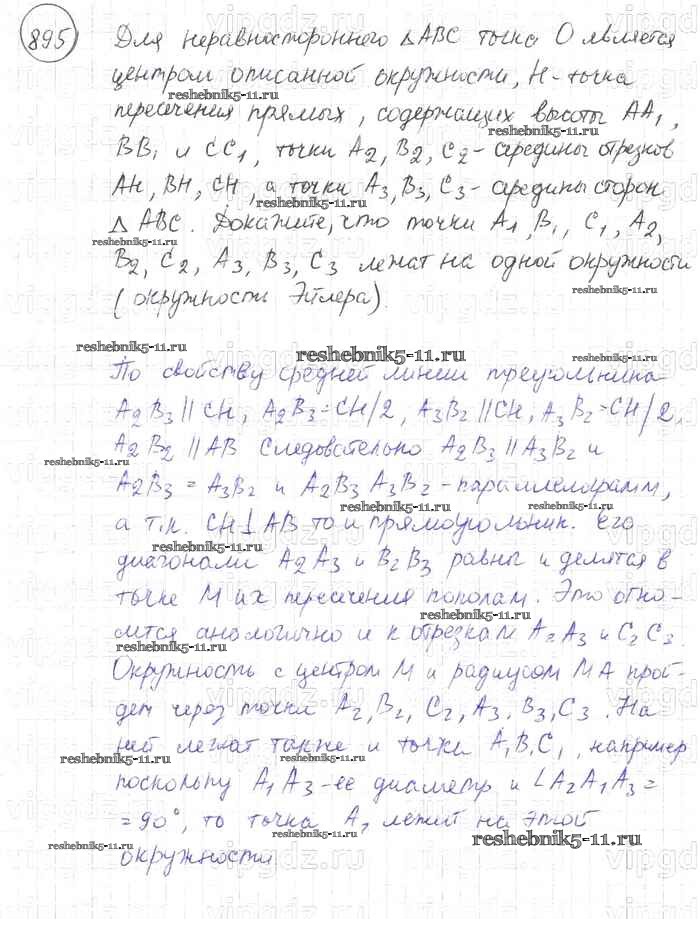 895
Для неравностороннего △ABC точка O является
центром описанной окружности, H - точка
пересечения прямых, содержащих высоты AA₁,
BB₁ и CC₁, точки A₂, B₂, C₂ - середины отрезков
AH, BH, CH, а точки A₃, B₃, C₃ - середины сторон
△ ABC. Докажите, что точки A₁, B₁, C₁, A₂,
B₂, C₂, A₃, B₃, C₃ лежат на одной окружности
(окружности Эйлера).
По свойству средней линии треугольника
A₂B₃ || CH, A₂B₃ = CH/2, A₃B₂ || CH, A₃B₂ = CH/2,
A₂B₂ || AB Следовательно A₂B₃ || A₃B₂ и
A₂B₃ = A₃B₂ и A₂B₃ A₃B₂ - параллелограмм,
а т.к. CH ⊥ AB то и прямоугольник. Его
диагонали A₂A₃ и B₂B₃ равны и делятся в
точке M их пересечения пополам. Это отно-
сится аналогично и к отрезкам A₂A₃ и C₂C₃.
Окружность с центром M и радиусом MA прой-
дет через точки A₂, B₂, C₂, A₃, B₃, C₃. На
ней лежат также и точки A₁B₁C₁, например
поскольку A₁A₃ - ее диаметр и ∠A₂A₁A₃ =
= 90°, то точка A₁ лежит на этой
окружности
reshebnik5-11.ru
vipgdz.ru